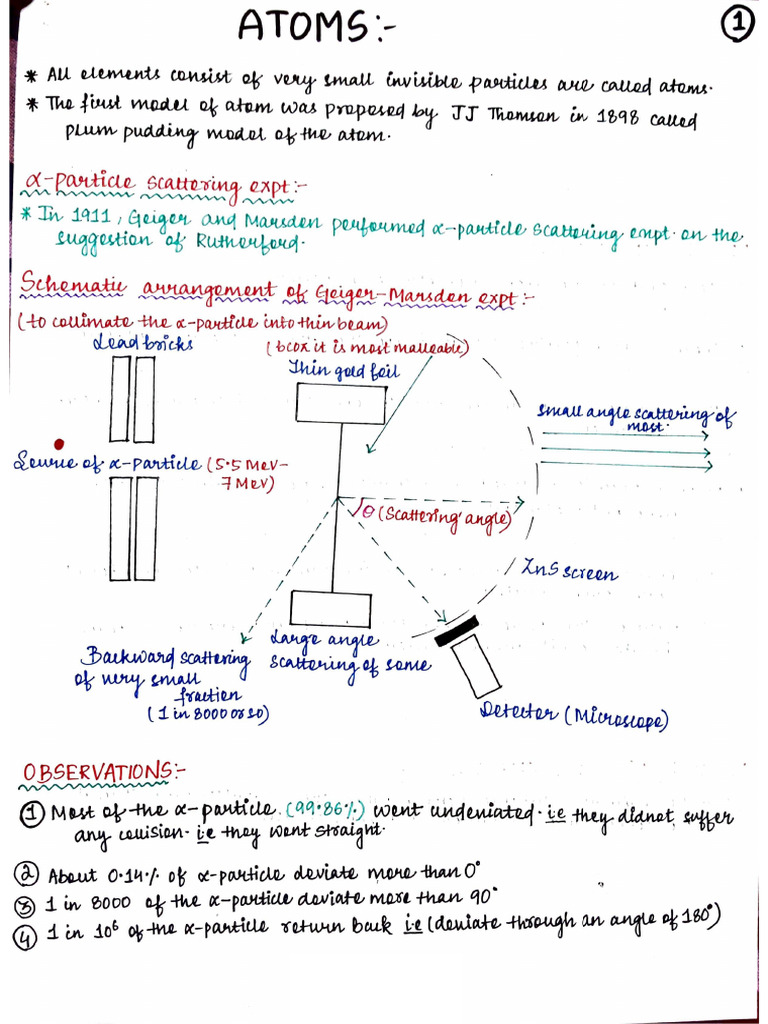 ATOMS:-
1
* All elements consist of very small invisible particles are called atoms.
* The first model of atom was proposed by JJ Thomson in 1898 called
plum pudding model of the atom.
α-particle scattering expt:-
* In 1911, Geiger and Marsden performed α-particle scattering expt. on the
suggestion of Rutherford.
Schematic arrangement of Geiger-Marsden expt:-
(to collimate the α-particle into thin beam)
Lead bricks
(bcoz it is most malleable)
Thin gold foil
Small angle scattering of
most.
Source of α-particle (5.5 MeV-
7 MeV)
θ (Scattering angle)
ZnS screen
Large angle
scattering of some
Backward scattering
of very small
fraction
(1 in 8000 or so)
Detector (Microscope)
OBSERVATIONS:-
1 Most of the α-particle (99.86%) went undeviated. i.e they didnot suffer
any collision. i.e they went straight.
2 About 0.14% of α-particle deviate more than 0°
3 1 in 8000 of the α-particle deviate more than 90°
4 1 in 10⁶ of the α-particle return back i.e (deviate through an angle of 180°)